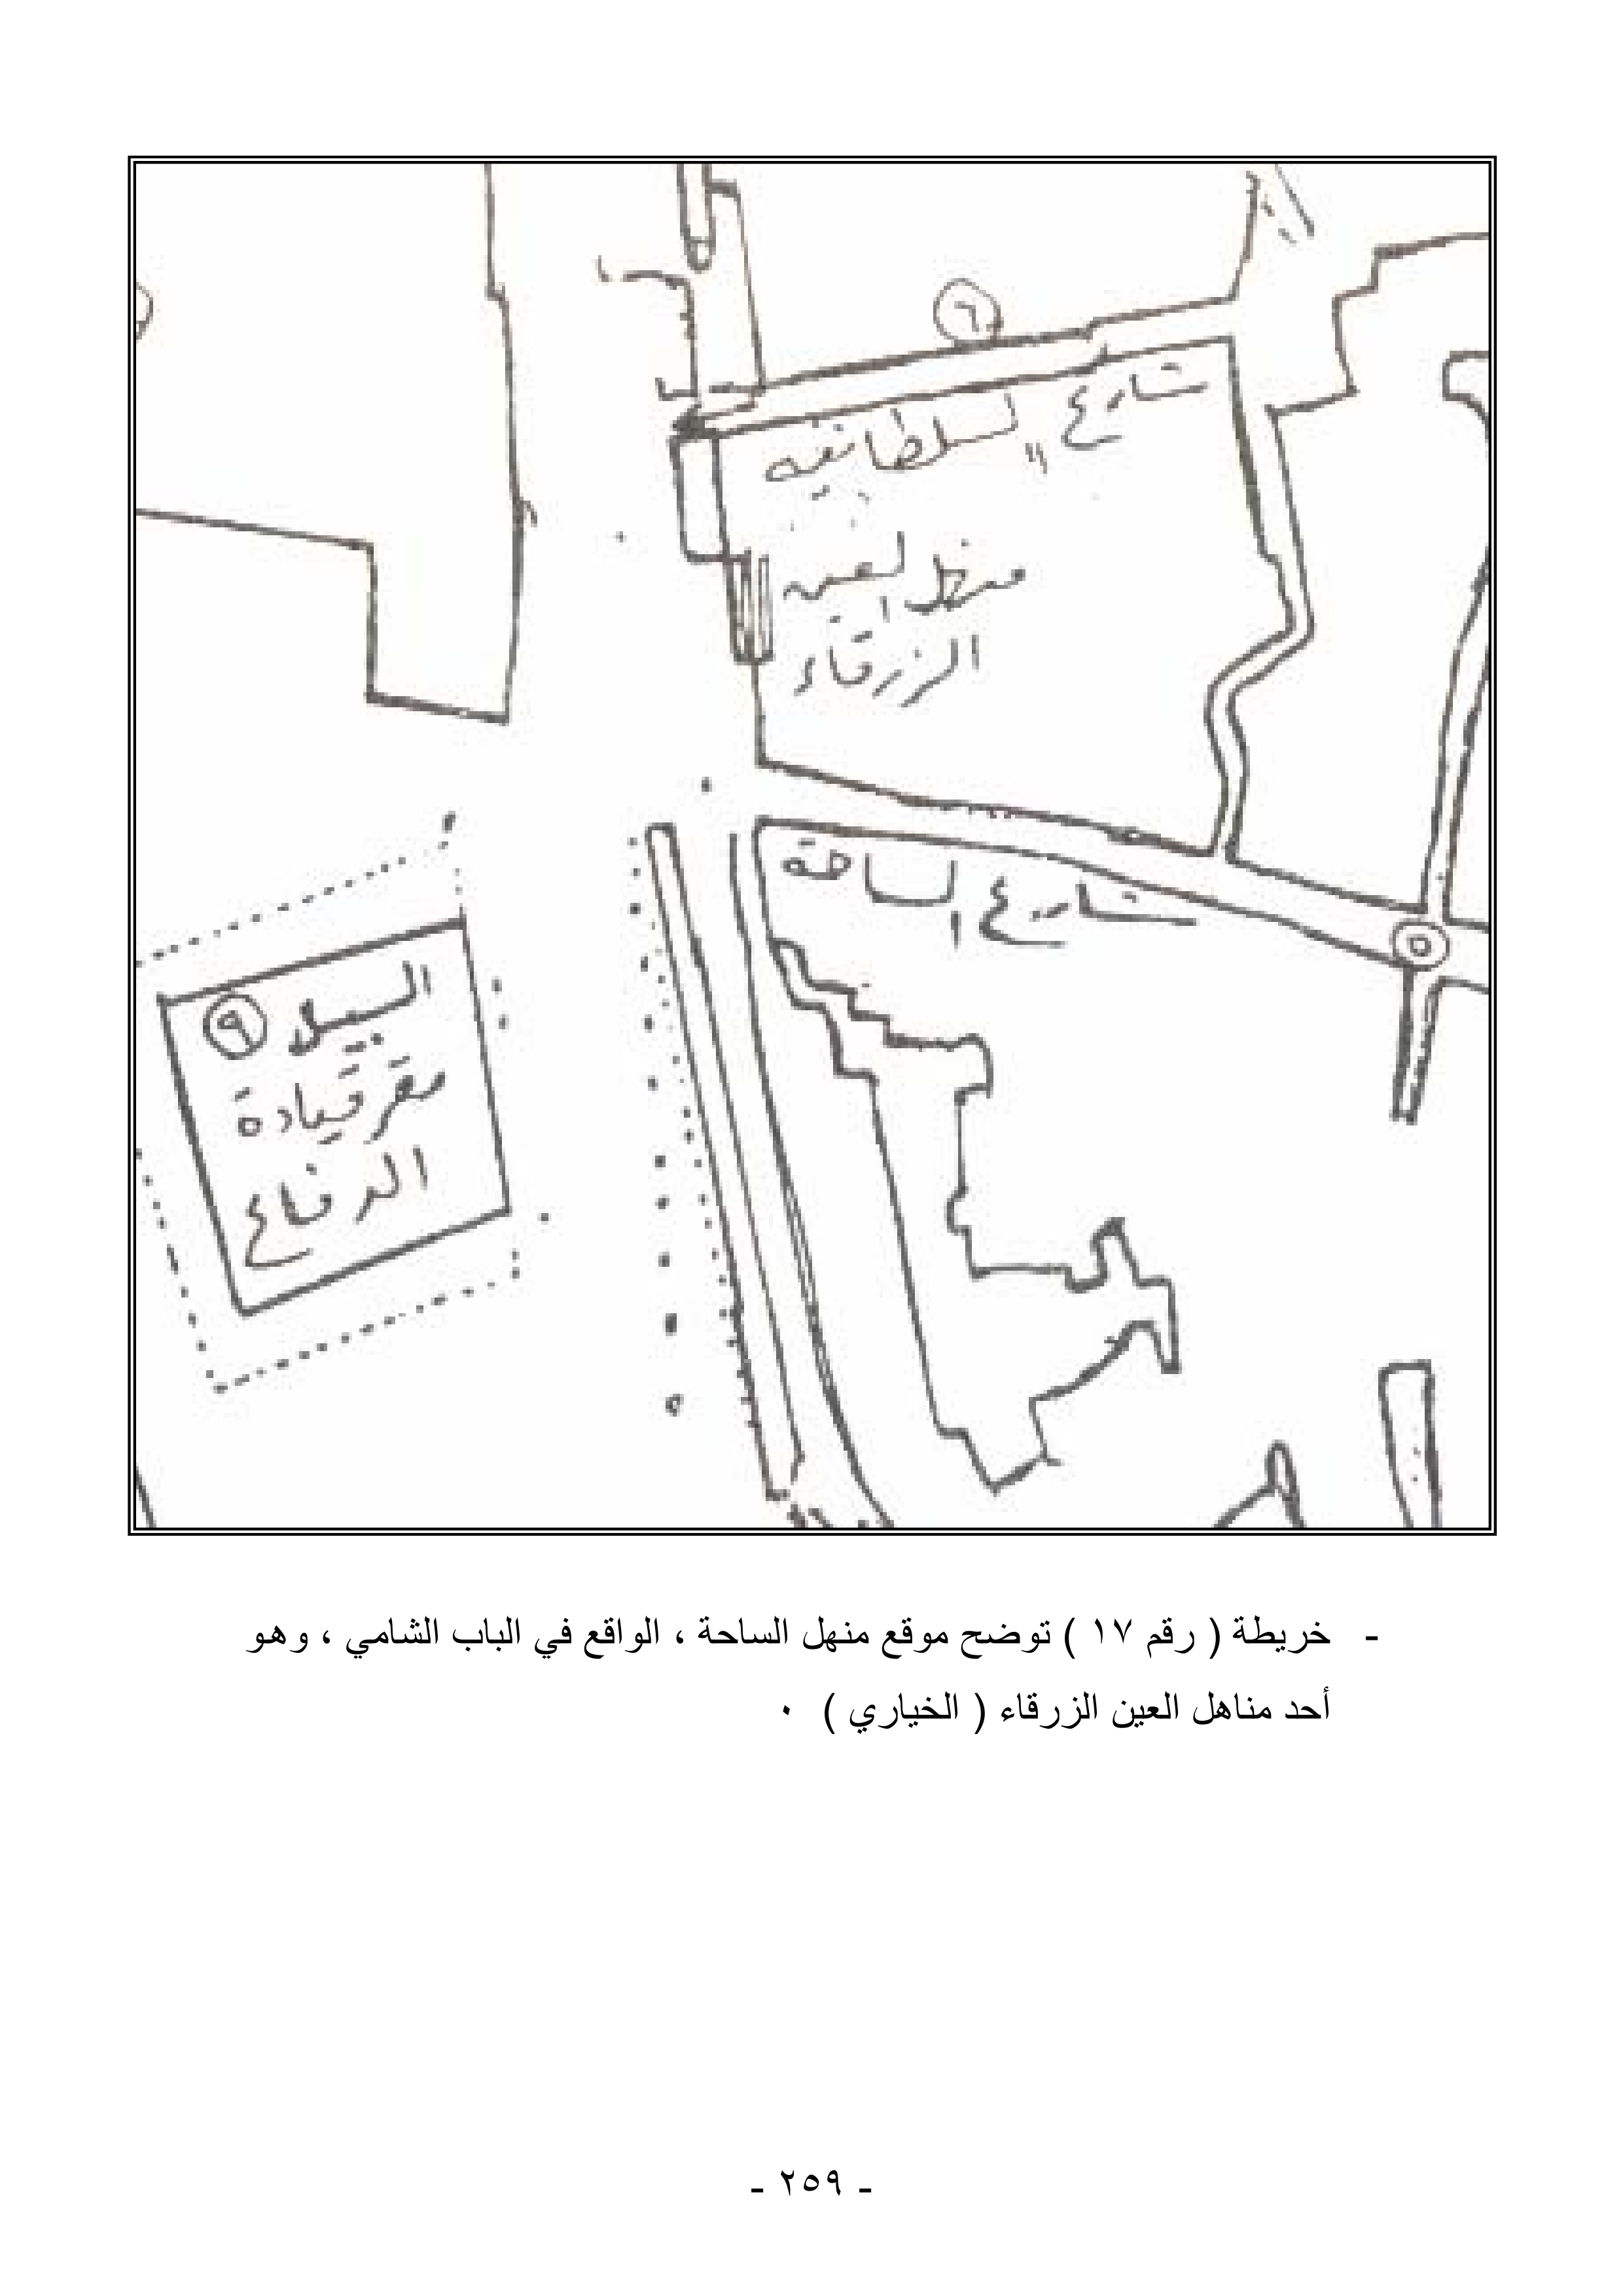 ٦
شارع السلطانية
منهل العين
الزرقاء
شارع الساحة
٥
السبيل ٩
مقر قيادة
الدفاع
- خريطة ( رقم ١٧ ) توضح موقع منهل الساحة ، الواقع في الباب الشامي ، وهو
أحد مناهل العين الزرقاء ( الخياري ) ٠
- ٢٥٩ -